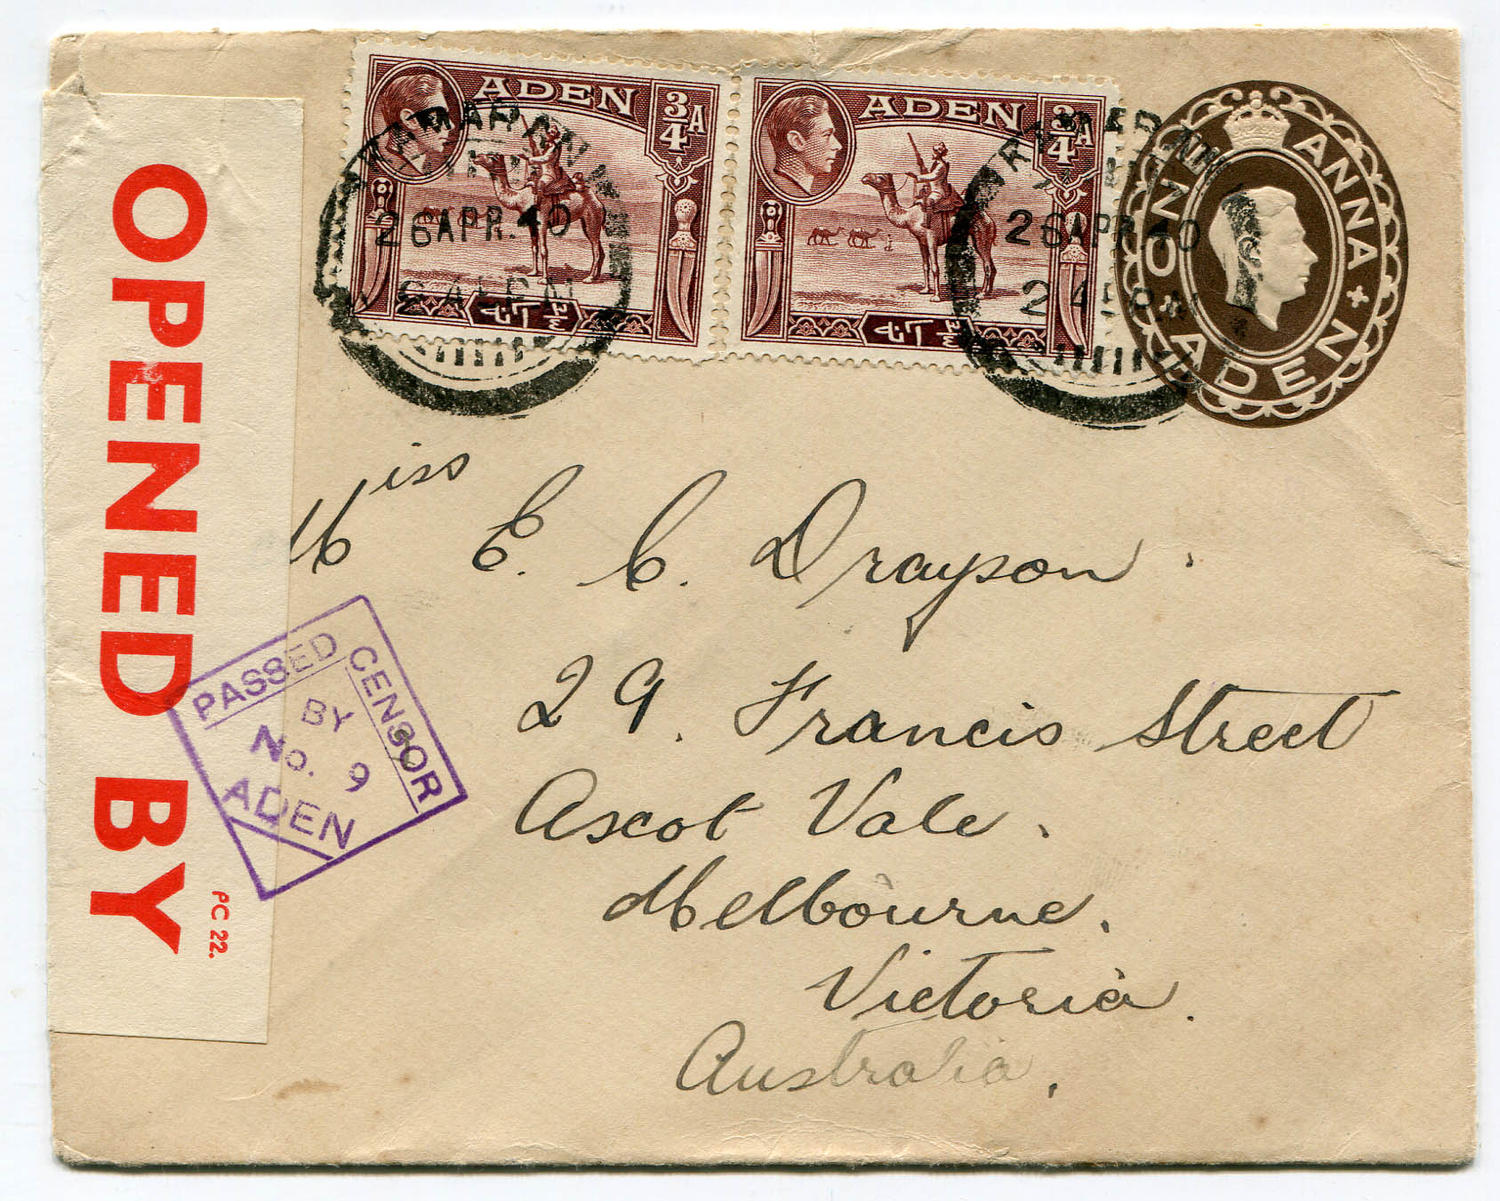 OPENED BY
PC 22.
ADEN
3/4 A
٣/٤ آنه
ADEN
3/4 A
٣/٤ آنه
ONE ANNA
ADEN
KAMARAN
26 APR. 40
KAMARAN
26 APR. 40
Miss E. C. Drayson
29. Francis Street
Ascot Vale.
Melbourne.
Victoria.
Australia.
PASSED
BY
CENSOR
No. 9
ADEN